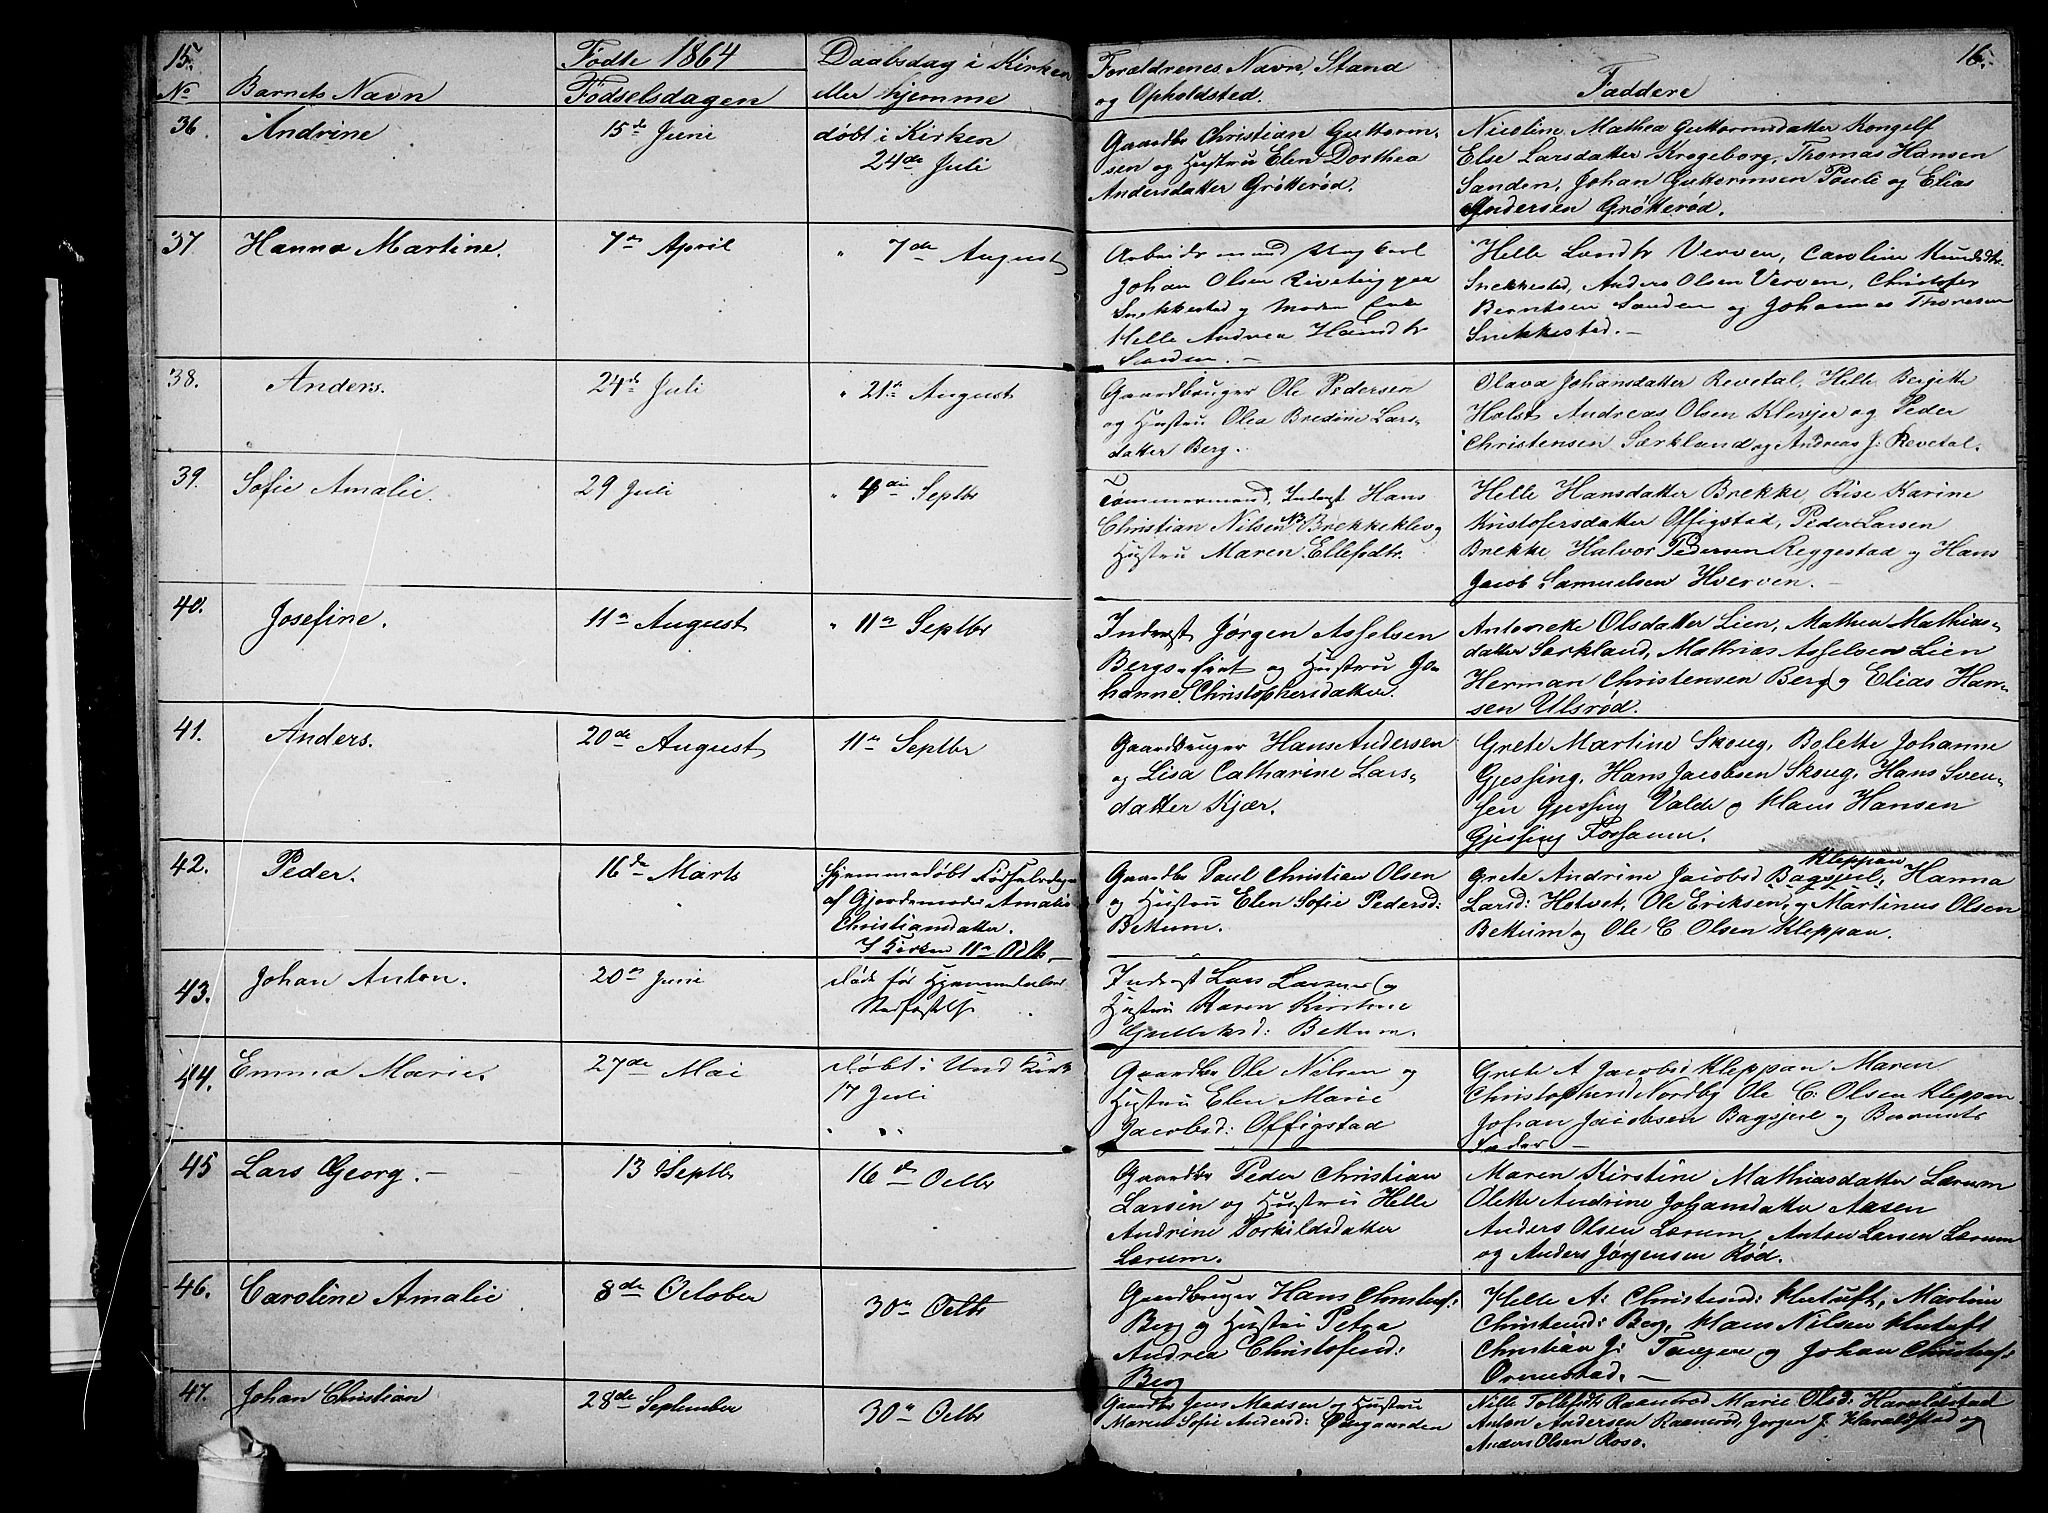 15. Fødte 1864 Daabsdag i Kirken Forældrenes Navn, Stand 16.
No Barnets Navn Fødselsdagen eller hjemme og Opholdsted. Faddere
36. Andrine 15de Juni døbt i Kirken
24de Juli
Gaardbr Christian Guttorm-
sen og Hustru Elen Dorthea
Andersdatter Grøtterød.
Nicoline Mathea Guttormsdatter Kongelf
Else Larsdatter Krogeborg, Thomas Hansen
Sanden, Johan Guttormsen Pauli og Elias
Andersen Grøtterød.
37 Hanna Martine. 7de April " 7de August
Arbeidsmand Ungkarl
Johan Olsen
Snekkestad og Moder Enke
Helle Andrea
Sanden. -
Helle Verven, Caroline
Snekkestad, Anders Olsen Verven, Christofer
Berntsen Sanden og Johannes Thoresen
Snekkestad. -
38. Anders. 24de Juli " 21de August
Gaardbruger Ole Pedersen
og Hustru Olea Bredine Lars-
datter Berg.
Olava Johansdatter Revetal, Helle Bergitte
Holst Andreas Olsen Klevjer og Peder
Christensen Særkland og Andreas J. Revetal.
39. Sofie Amalie. 29 Juli " 4de Septbr
Tømmermand, Inderst Hans
Christian Nilsen Brekkeklev og
Hustru Maren Ellefsdtr.
Helle Hansdatter Brekke, Rise Karine
Kristofersdatter Offigstad, Peder Larsen
Brekke, Halvor Pedersen Reggestad og Hans
Jacob Samuelsen Hverven. -
40. Josefine. 11te August " 11te Septbr
Inderst Jørgen Asselsen
Bergs- og Hustru Jo-
hanne Christophersdatter.
Olsdatter Lien, Mathea Mathias-
datter Særkland, Mathias Asselsen Lien
Herman Christensen Berg og Elias Han-
sen Ulsrød.
41. Anders. 20de August 11te Septbr
Gaardbruger Hans Andersen
og Lisa Catharine Lars-
datter Kjær.
Grete Martine Skoug, Bolette Johanne
Gjessing, Hans Jacobsen Skoug, Hans Sven-
sen Gjessing Valde og Klaus Hansen
Gjessing Fossanen.
42. Peder. 16de Marts Hjemmedøbt Fødselsdagen
af Gjordemoder Amalie
Christiansdatter.
I Kirken 11te Octb.
Gaardbr Paul Christian Olsen
og Hustru Elen Sofie Pedersd:
Bettum.
Kleppan
Grete Andrine Jacobsd Bagsjul, Hanna
Larsd: Helvet, Ole Eriksen, og Martinus Olsen
Bettum og Ole C Olsen Kleppan.
43. Johan Anton. 20de Juni døde før Hjemmedaabens
Stadfæstelse
Inderst Lars Larsen og
Hustru Karen Kirstine
Gulleksd: Bettum.
44. Emma Marie. 27de Mai døbt i Und Kirk
17 Juli
Gaardbr Ole Nilsen og
Hustru Elen Marie
Jacobsd: Offigstad
Grete A Jacobsd Kleppan Maren
Christophersd Nordby Ole C. Olsen Kleppan
Johan Jacobsen Bagsjul og Barnets
Fader -
45 Lars Georg. - 13 Septbr 16de Octbr
Gaardbr Peder Christian
Larsen og Hustru Helle
Andrine Torkildsdatter
Lærum.
Maren Kirstine Mathiasdatter Lærum
Olette Andrine Johansdatter Aasen
Anders Olsen Lærum, Anton Larsen Lærum
og Anders Jørgensen Rød.
46. Caroline Amalie 8de October 30te Octbr
Gaardbruger Hans Christofs:
Berg og Hustru Petra
Andrea Christofersd:
Berg
Helle A: Christensd: Hutuft, Martine
Christensd: Berg, Klaus Nilsen Hutuft
Christian J: og Johan Christofs:
Ormestad. -
47. Johan Christian 28de September 30te Octbr
Gaardbr Jens Madsen og Hustru
Maren Sofie Andersd: Østgaarden
Nille Tollefsdtr Raanerød Marie Olsd: Haraldstad
Anton Andersen Raanerød, Jørgen J. Haraldstad og
Anders Olsen Roso.